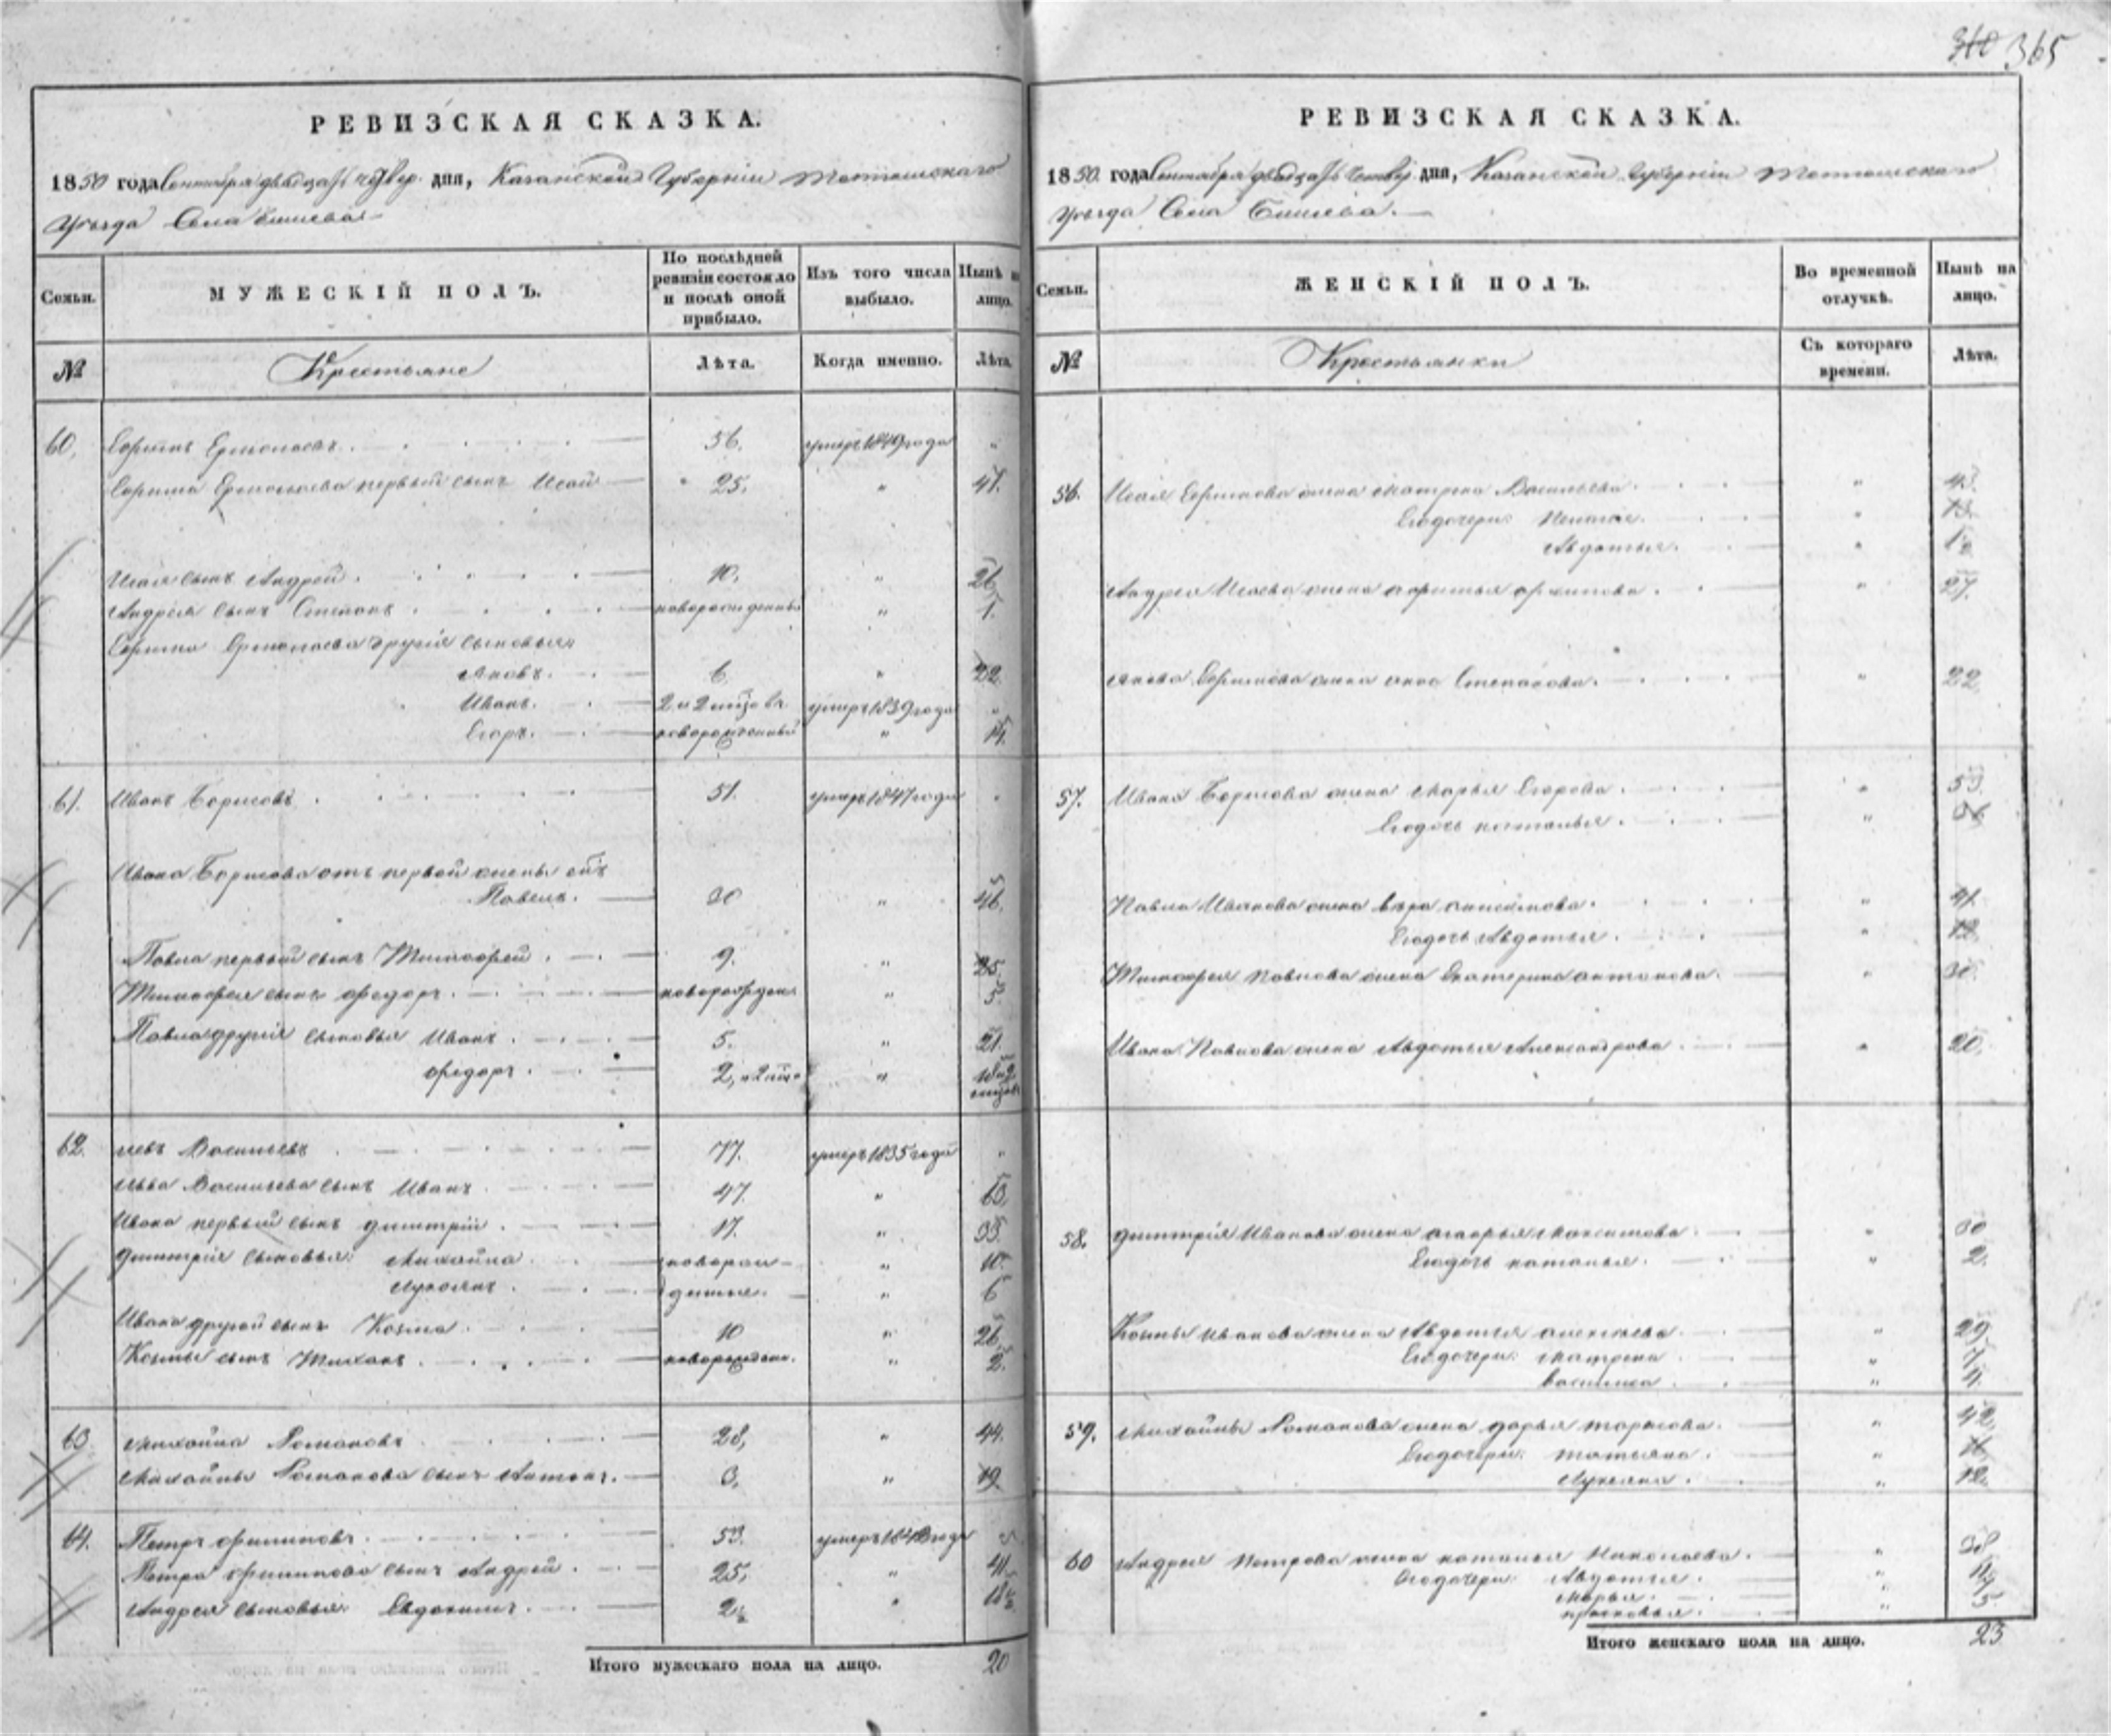 365
РЕВИЗСКАЯ СКАЗКА.
1850 года Сентября двадцать четвер. дня, Казанской Губерніи Тетюшскаго
Уѣзда Села
Семьи.
МУЖЕСКІЙ ПОЛЪ.
По послѣдней ревизіи состояло и послѣ оной прибыло.
Изъ того числа выбыло.
Нынѣ на лицо.
№
Крестьяне
Лѣта.
Когда именно.
Лѣта.
60. Ермолаевъ. 56. умеръ 1849 года "
Ермолаева первый сынъ Исай 25. " 41.
Исая сынъ Андрей. 10. " 26
Андрея сынъ Степанъ новорожденный " 1.
Ермолаева другіе сыновья:
Яковъ. 6 " 22
Иванъ. умеръ 1839 года "
Егоръ. новорожденный " 14.
61. Иванъ Борисовъ. 51. умеръ 1847 года "
Ивана Борисова отъ первой жены
Павелъ. 30 " 46.
Павла первый сынъ Тимофей. 9. " 25.
Тимофея сынъ Федоръ. " 5
Павла другіе сыновья Иванъ. 5. " 21.
Федоръ. "
62. Левъ Васильевъ 77. умеръ 1835 года "
Льва Васильева сынъ Иванъ 47. " 63.
Ивана первый сынъ Дмитрій. 17. " 33.
Дмитрія сыновья: Михайла " 10.
" 6
Ивана другой сынъ Козма 10 " 26.
Козмы сынъ новорожден. " 2.
63. Михайла Романовъ 28, " 44.
Михайлы Романова сынъ Антонъ. 3. " 19.
64. Петръ Филиповъ. 53. умеръ
Петра Филипова сынъ Андрей. 25. " 41.
Андрея сыновья: Евдокимъ.
Итого мужескаго пола на лицо. 20
РЕВИЗСКАЯ СКАЗКА.
1850 года Сентября двадцать четвер. дня, Казанской Губерніи Тетюшскаго
Уѣзда Села
Семьи.
ЖЕНСКІЙ ПОЛЪ.
Во временной отлучкѣ.
Нынѣ на лицо.
№
Крестьянки
Съ котораго времени.
Лѣта.
56. Исая жена Матрена Васильева. " 43.
Его дочери: " 13.
Авдотья. "
Андрея Исаева жена " 27.
Якова жена Анна Степанова. " 22
57. Ивана Борисова жена Марья Егорова. " 53.
Его дочь Наталья. "
Павла Иванова жена Вера " 41.
Его дочь Авдотья. " 12.
Тимофея Павлова жена Екатерина Антонова. " 30.
Ивана Павлова жена Авдотья Александрова. " 20.
58. Дмитрія Иванова жена " 30
Его дочь Наталья. " 2.
Козмы Иванова жена Авдотья Алексѣева. " 29.
Его дочери: Матрена " 7.
Василиса " 4.
59. Михайлы Романова жена Дарья Тарасова. " 42.
Его дочери: Татьяна. "
Лукеяна. " 12.
60 Андрея Петрова жена Наталья Николаева. " 38
Его дочери: Авдотья. "
Марья. "
Прасковья. " 5.
Итого женскаго пола на лицо. 23